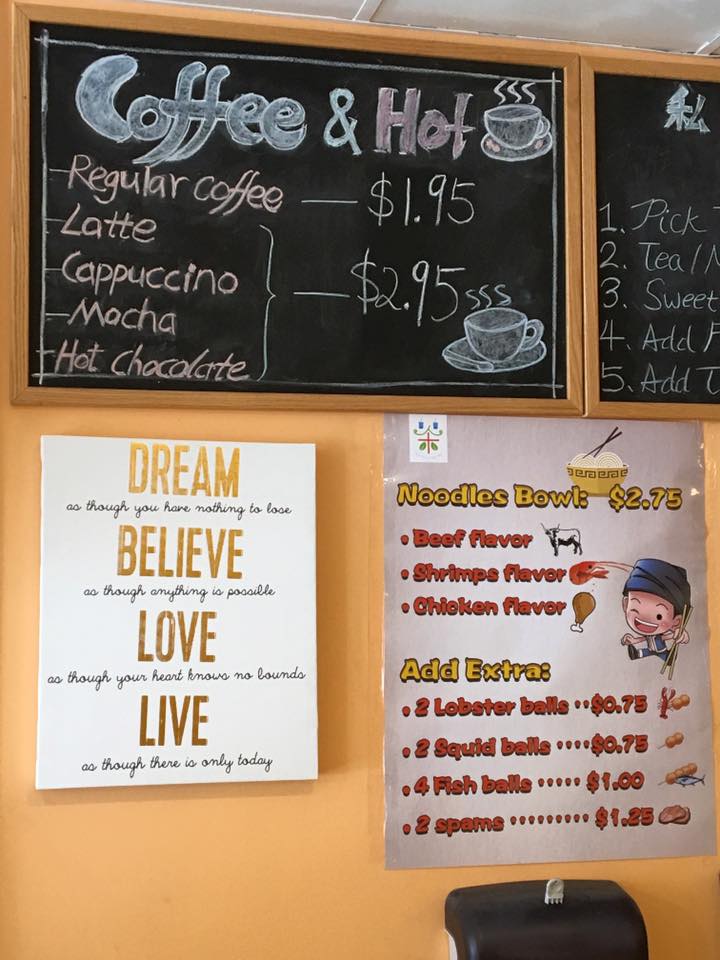 Coffee & Hot
-Regular coffee — $1.95
-Latte
-Cappuccino — $2.95
-Mocha
-Hot chocolate
私
1. Pick
2. Tea/
3. Sweet
4. Add
5. Add
DREAM
as though you have nothing to lose
BELIEVE
as though anything is possible
LOVE
as though your heart knows no bounds
LIVE
as though there is only today
Noodles Bowl: $2.75
• Beef flavor
• Shrimps flavor
• Chicken flavor
Add Extra:
• 2 Lobster balls ··$0.75
• 2 Squid balls ····$0.75
• 4 Fish balls ····· $1.00
• 2 spams ········· $1.25